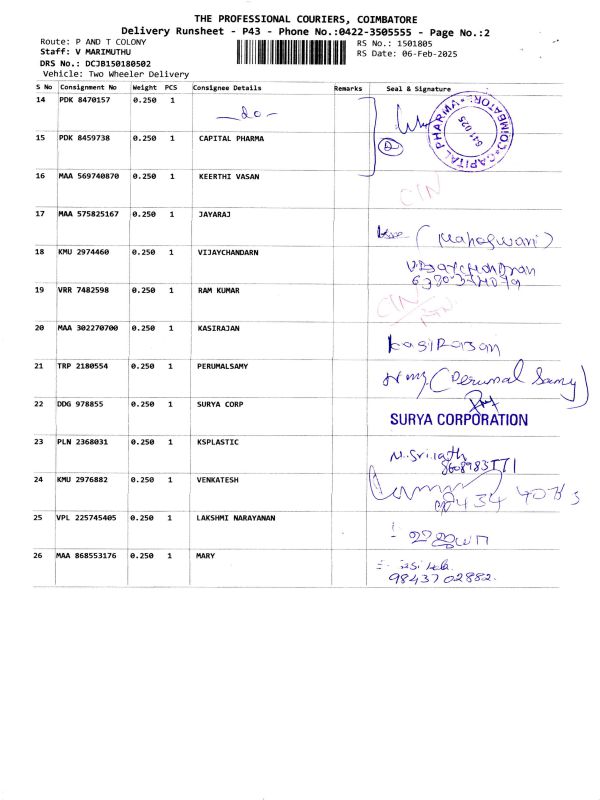 THE PROFESSIONAL COURIERS, COIMBATORE
Delivery Runsheet - P43 - Phone No.:0422-3505555 - Page No.:2
Route: P AND T COLONY
RS No.: 1501805
Staff: V MARIMUTHU
RS Date: 06-Feb-2025
DRS No.: DCJB150180502
Vehicle: Two Wheeler Delivery
S No Consignment No Weight PCS Consignee Details Remarks Seal & Signature
14 PDK 8470157 0.250 1 -do-
CAPITAL PHARMA COIMBATORE 641 025
15 PDK 8459738 0.250 1 CAPITAL PHARMA
16 MAA 569740870 0.250 1 KEERTHI VASAN CIN
17 MAA 575825167 0.250 1 JAYARAJ (Maheswari)
18 KMU 2974460 0.250 1 VIJAYCHANDARN
19 VRR 7482598 0.250 1 RAM KUMAR CIN
20 MAA 302270700 0.250 1 KASIRAJAN kasiRajan
21 TRP 2180554 0.250 1 PERUMALSAMY (Perumal Samy)
22 DDG 978855 0.250 1 SURYA CORP SURYA CORPORATION
23 PLN 2368031 0.250 1 KSPLASTIC
24 KMU 2976882 0.250 1 VENKATESH
25 VPL 225745405 0.250 1 LAKSHMI NARAYANAN
26 MAA 868553176 0.250 1 MARY
9843702882.